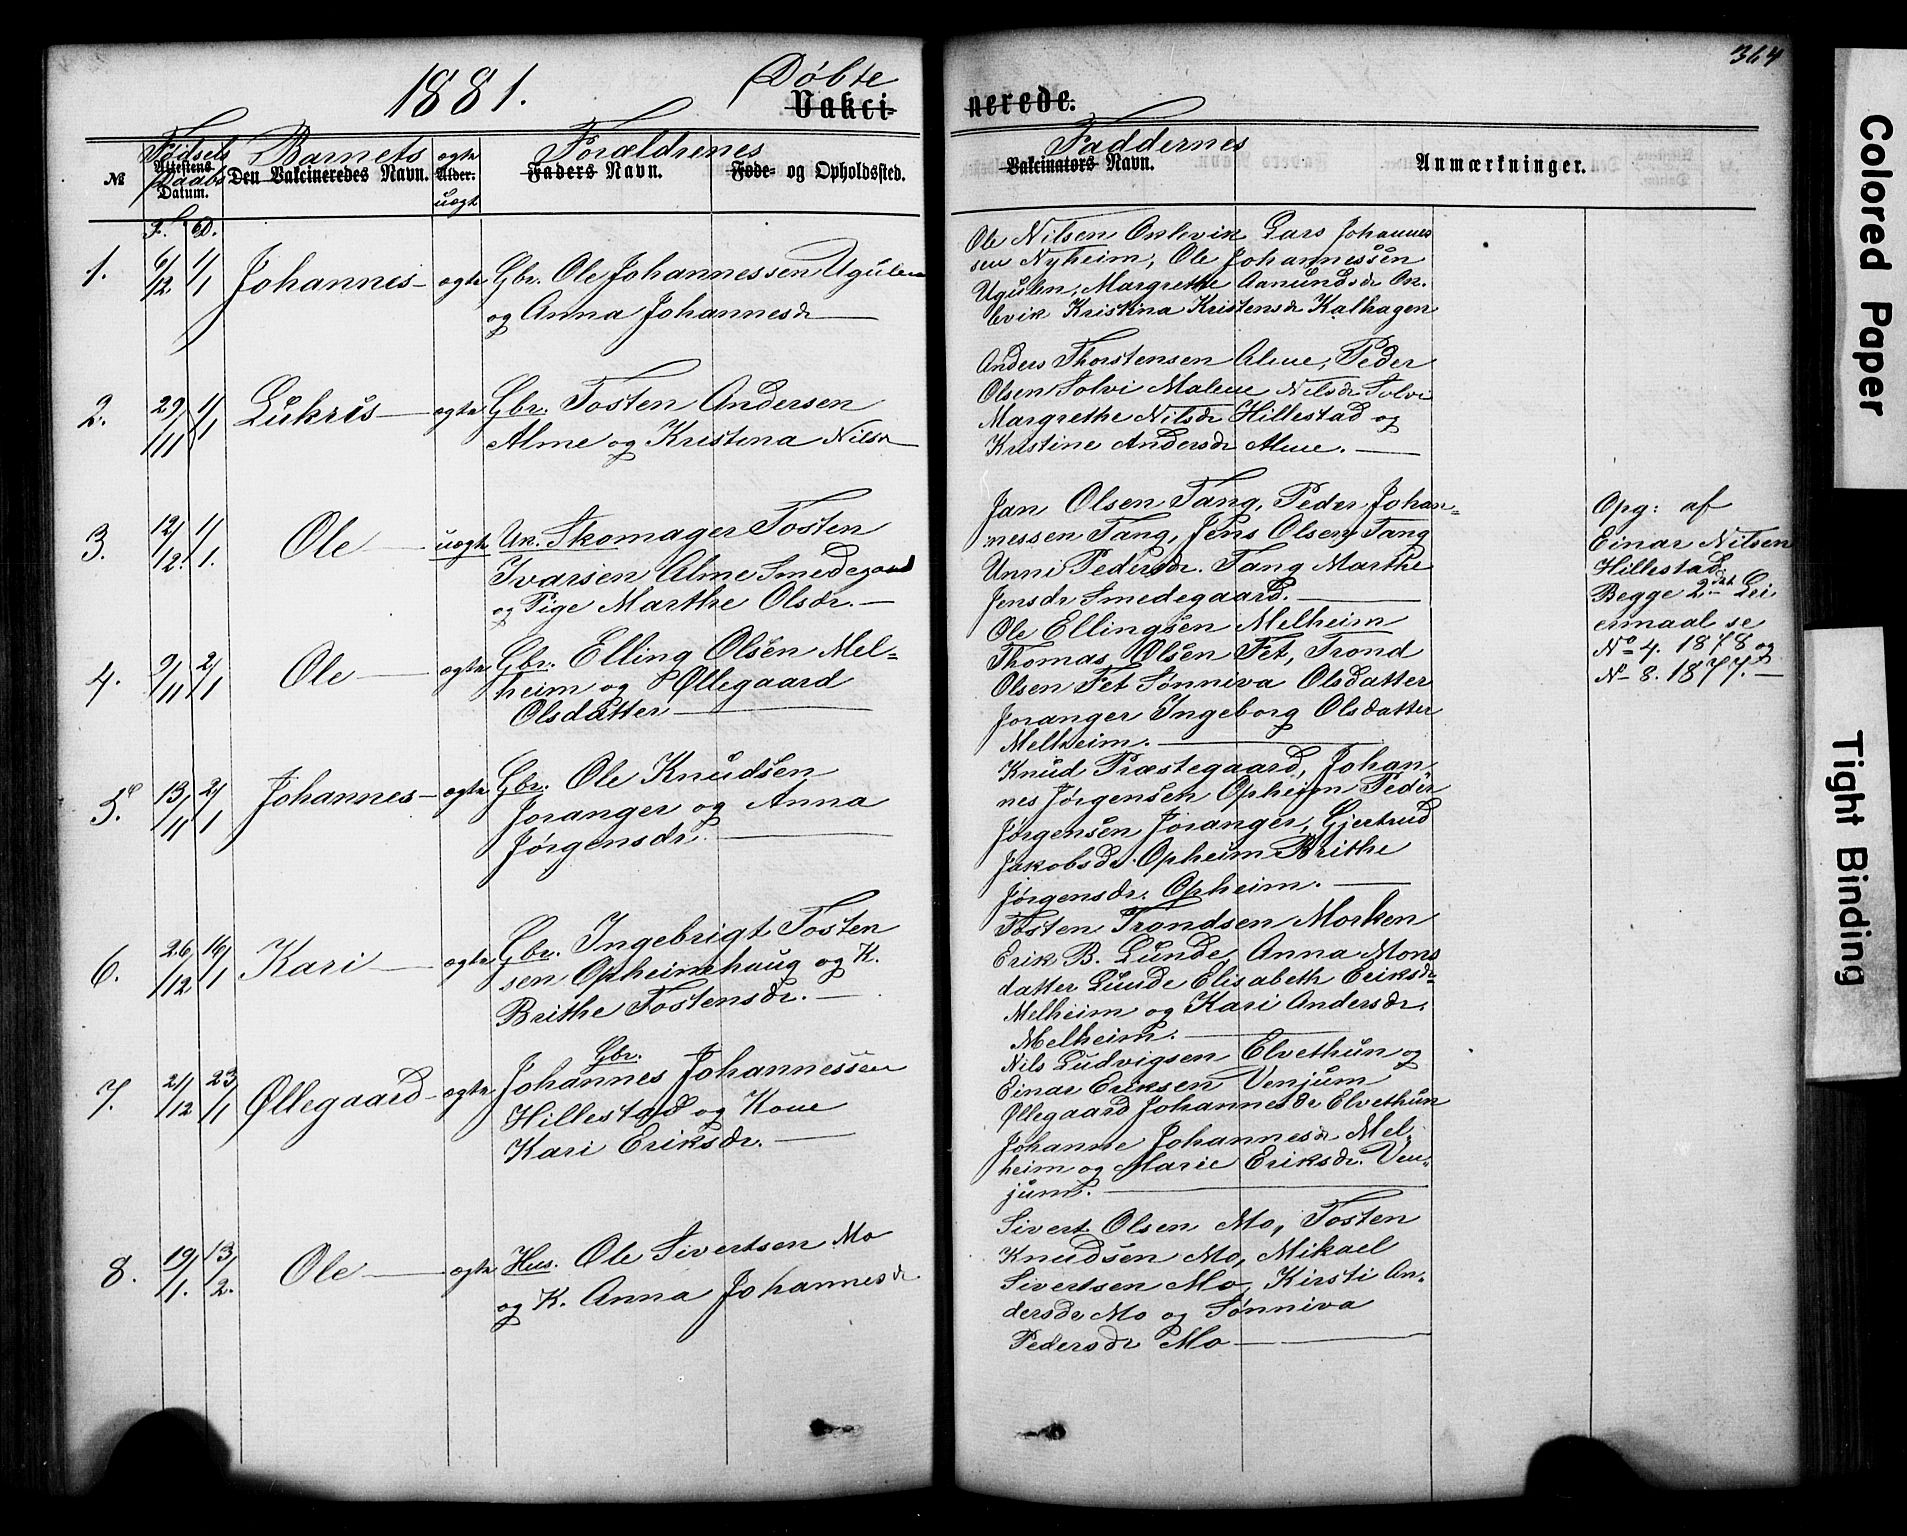 364
1881.
Døbte
Vakci-
nerede.
Fødsels
Barnets
ægte
Forældrenes
Faddernes
№
Attestens
Daabs
Datum.
Den Vakcineredes Navn.
Alder.
uægt
Faders Navn.
Føde- og Opholdssted.
Vakcinators Navn.
Anmærkninger.
F. D.
1. 6/12 1/1 Johannes ægte Gbr. Ole Johannessen Ugulen
og Anna Johannesdr
Ole Nilsen Onlevik Lars Johannes
sen Nyheim, Ole Johannessen
Ugulen, Margrethe Aamundsdr On-
levik Kristina Kristensdr Kalhagen
2. 29/11 1/1 Lukris ægte Gbr. Tosten Andersen
Alme og Kristina Nilsdr
Anders Thorstensen Alme, Peder
Olsen Solvi Malene Nilsdr Solvi
Margrethe Nilsdr Hillestad og
Kristine Andersdr Alme.
3. 12/12. 1/1. Ole uægte Uk. Skomager Tosten
Ivarsen Alme Smedegaard
og Pige Marthe Olsdr.
Jan Olsen Tang, Peder Johan-
nessen Tang, Jens Olsen Tang
Unni Pedersdr. Tang Marthe
Jensdr Smedegaard.
Opg: af
Einar Nilsen
Hillestad.
Begge 2det Lei
ermaal se
No 4. 1878 og
No 8. 1877.
4. 9/11 2/1 Ole ægte Gbr. Elling Olsen Mel-
heim og Øllegaard
Olsdatter
Ole Ellingsen Melheim
Thomas Olsen Fet, Trond
Olsen Fet Sønniva Olsdatter
Joranger Ingeborg Olsdatter
Melheim.
5. 13/11 2/1 Johannes ægte Gbr. Ole Knudsen
Joranger og Anna
Jørgensdr.
Knud Præstegaard, Johan
nes Jørgensen Opheim Peder
Jørgensen Joranger, Gjertrud
Jakobsdr. Opheim Brithe
Jørgensdr. Opheim.
6. 26/12 16/1 Kari ægte Gbr. Ingebrigt Tosten
sen Opheimshaug og K.
Brithe Tostensdr.
Tosten Trondsen Morken
Erik B. Lunde, Anna Mons
datter Lunde Elisabeth Eriksdr-
Melheim og Kari Andersdr.
Melheim.
7. 21/12 23/1 Øllegaard ægte Gbr.
Johannes Johannessen
Hillestad og Kone
Kari Eriksdr.
Nils Ludvigsen Elvethun og
Einar Eriksen Venjum
Øllegaard Johannesdr Elvethun
Johanne Johannesdr Mel-
heim og Marie Eriksdr. Ven-
jum.
8. 19/1. 13/2. Ole ægte Hus. Ole Sivertsen Mo
og K. Anna Johannesdr
Sivert Olsen Mo, Tosten
Knudsen Mo, Mikael
Sivertsen Mo, Kirsti An-
dersdr Mo og Sønniva
Pedersdr Mo
Colored Paper
Tight Binding